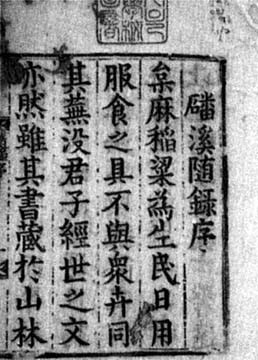 磻溪隨錄序
桒麻稻粱為生民日用
服食之具不與衆卉同
其蕪没君子經世之文
亦然雖其書藏於山林